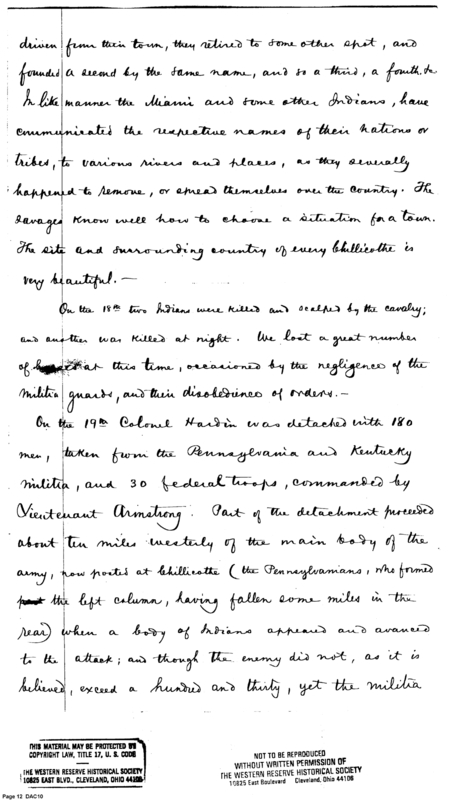 driven from their town, they retired to some other spot, and
founded a second by the same name, and so a third, a fourth. &c
In like manner the Miami and some other Indians, have
communicated the respective names of their nations or
tribes, to various rivers and places, as they severally
happened to remove, or spread themselves over the country. The
savages know well how to choose a situation for a town.
The site and surrounding country of every Chillicothe is
very beautiful. —
On the 18th two Indians were killed and scalped by the cavalry;
and another was killed at night. We lost a great number
of at this time, occasioned by the negligence of the
militia guards, and their disobedience of orders. —
On the 19th Colonel Hardin was detached with 180
men, taken from the Pennsylvania and Kentucky
militia, and 30 federal troops, commanded by
Lieutenant Armstrong. Part of the detachment proceeded
about ten miles westerly of the main body of the
army, now posted at Chillicothe (the Pennsylvanians, who formed
the left column, having fallen some miles in the
rear) when a body of Indians appeared and avanced
to the attack; and though the enemy did not, as it is
believed, exceed a hundred and thirty, yet the militia
THIS MATERIAL MAY BE PROTECTED BY
COPYRIGHT LAW, TITLE 17, U. S. CODE
THE WESTERN RESERVE HISTORICAL SOCIETY
10825 EAST BLVD., CLEVELAND, OHIO 44106
NOT TO BE REPRODUCED
WITHOUT WRITTEN PERMISSION OF
THE WESTERN RESERVE HISTORICAL SOCIETY
10825 East Boulevard Cleveland, Ohio 44106
Page 12 DAC10